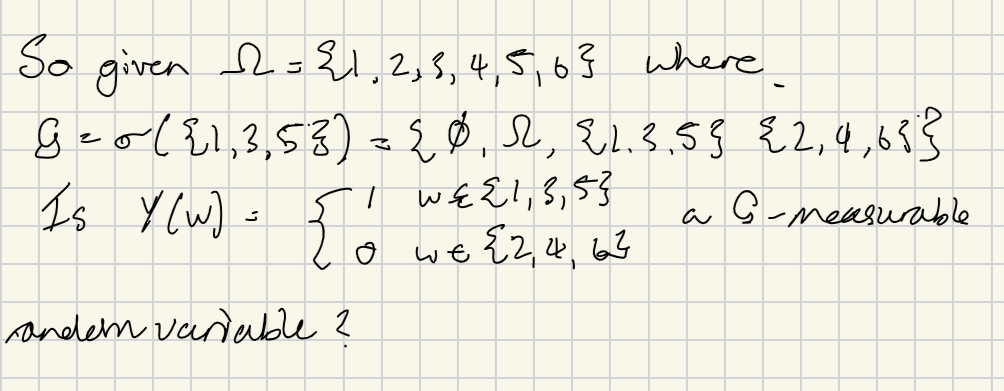 So given Ω = {1, 2, 3, 4, 5, 6} where
G = σ({1, 3, 5}) = {∅, Ω, {1, 3, 5} {2, 4, 6}}
Is Y(w) = { 1 w ∈ {1, 3, 5} a G-measurable
0 w ∈ {2, 4, 6}
random variable?